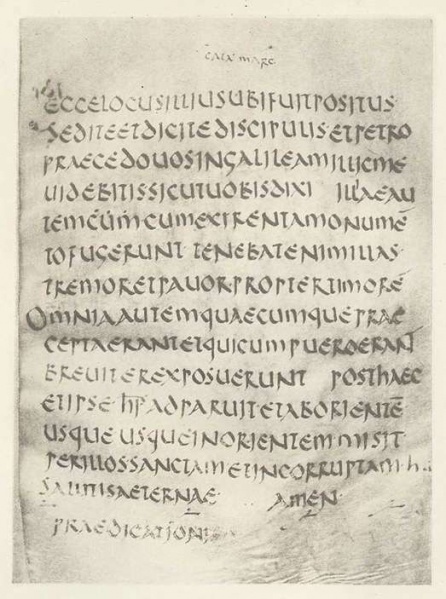 CATA MARC
ECCELOCUSILLIUSUBIFUITPOSITUS
SEDITEETDICITEDISCIPULISETPETRO
PRAECEDOUOSINGALILEAMILLICME
UIDEBITISSICUTUOBISDIXI ILLAEAU
TEMCUMCUMEXIRENTAMONUMĒ
TOFUGERUNT TENEBATENIMILLAS
TREMORETPAUORPROPTERTIMORĒ
OMNIAAUTEMQUAECUMQUEPRAE
CEPTAERANTETQUICUMPUEROERANT
BREUITEREXPOSUERUNT POSTHAEC
ETIPSE H̅P̅ADPARUITETABORIENTĒ
USQUEUSQUEINORIENTEMMISIT
PERILLOSSANCTAMETINCORRUPTAM
SALUTISAETERNAE AMEN
PRAEDICATIONIS